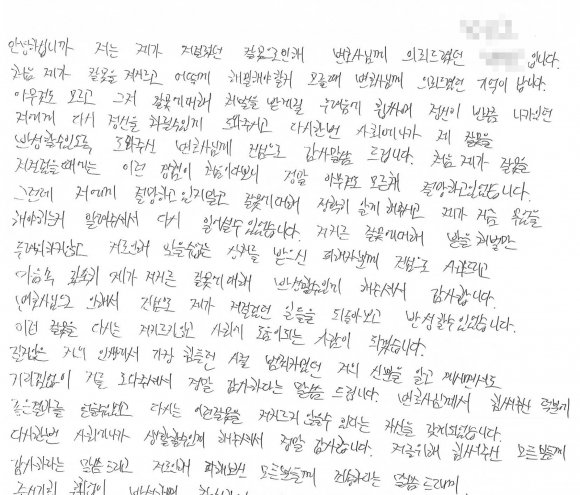 안녕하십니까 저는 제가 저질렀던 잘못으로인해 변호사님께 의뢰드렸던 입니다.
처음 제가 잘못을 저지르고 어떻게 해결해야할지 모를때 변호사님께 의뢰드렸던 기억이 납니다.
아무것도 모르고 그저 잘못에대해 처벌을 받게될 두려움에 휩싸여 정신이 반쯤 나가있던
저에게 다시 정신을 차릴수있게 도와주시고 다시한번 사회에나가 제 잘못을
반성할수있도록 도와주신 변호사님께 진심으로 감사말씀 드립니다. 처음 제가 잘못을
저질렀을때에는 이런 경험이 처음이다보니 정말 아무것도 모른채 절망하고있었습니다.
그런데 저에게 절망하고있지말고 잘못에대해 정확히 알게해주시고 제가 지금 무엇을
해야하는지 알려주셔서 다시 일어설수있었습니다. 저지른 잘못에대해 받을 처벌만
두려워하지않고 저로인해 상처를 받으신 피해자분께 진심으로 사과드리고
마음속 깊숙히 제가 저지른 잘못에대해 반성할수있게 해주셔서 감사합니다.
변호사님으로 인해서 진심으로 제가 저질렀던 일들을 되돌아보고 반성할수있었습니다.
이런 잘못을 다시는 저지르지않고 사회에 도움이되는 사람이 되겠습니다.
인생에서 가장 힘들던 시절 범죄자였던 저의 신분을 알고 계시면서도
거리낌없이 저를 도와주셔서 정말 감사하다는 말씀 드립니다. 변호사님께서 힘써주신 덕분에
좋은결과를 얻을수있었고 다시는 이런잘못을 저지르지 않을수 있다는 자신을 갖게되었습니다.
다시한번 사회에나가 생활할수있게 해주셔서 정말 감사합니다. 저를위해 힘써주신 모든분들께
감사하다는 말씀드리고 저로인해 피해보신 모든분들께 죄송하다는 말씀 드리며